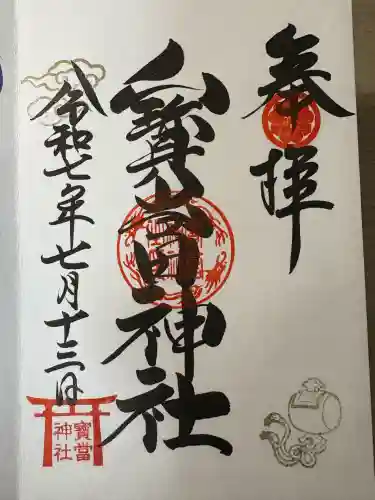 奉拝
寳當神社
令和七年七月十三日
寶當
神社